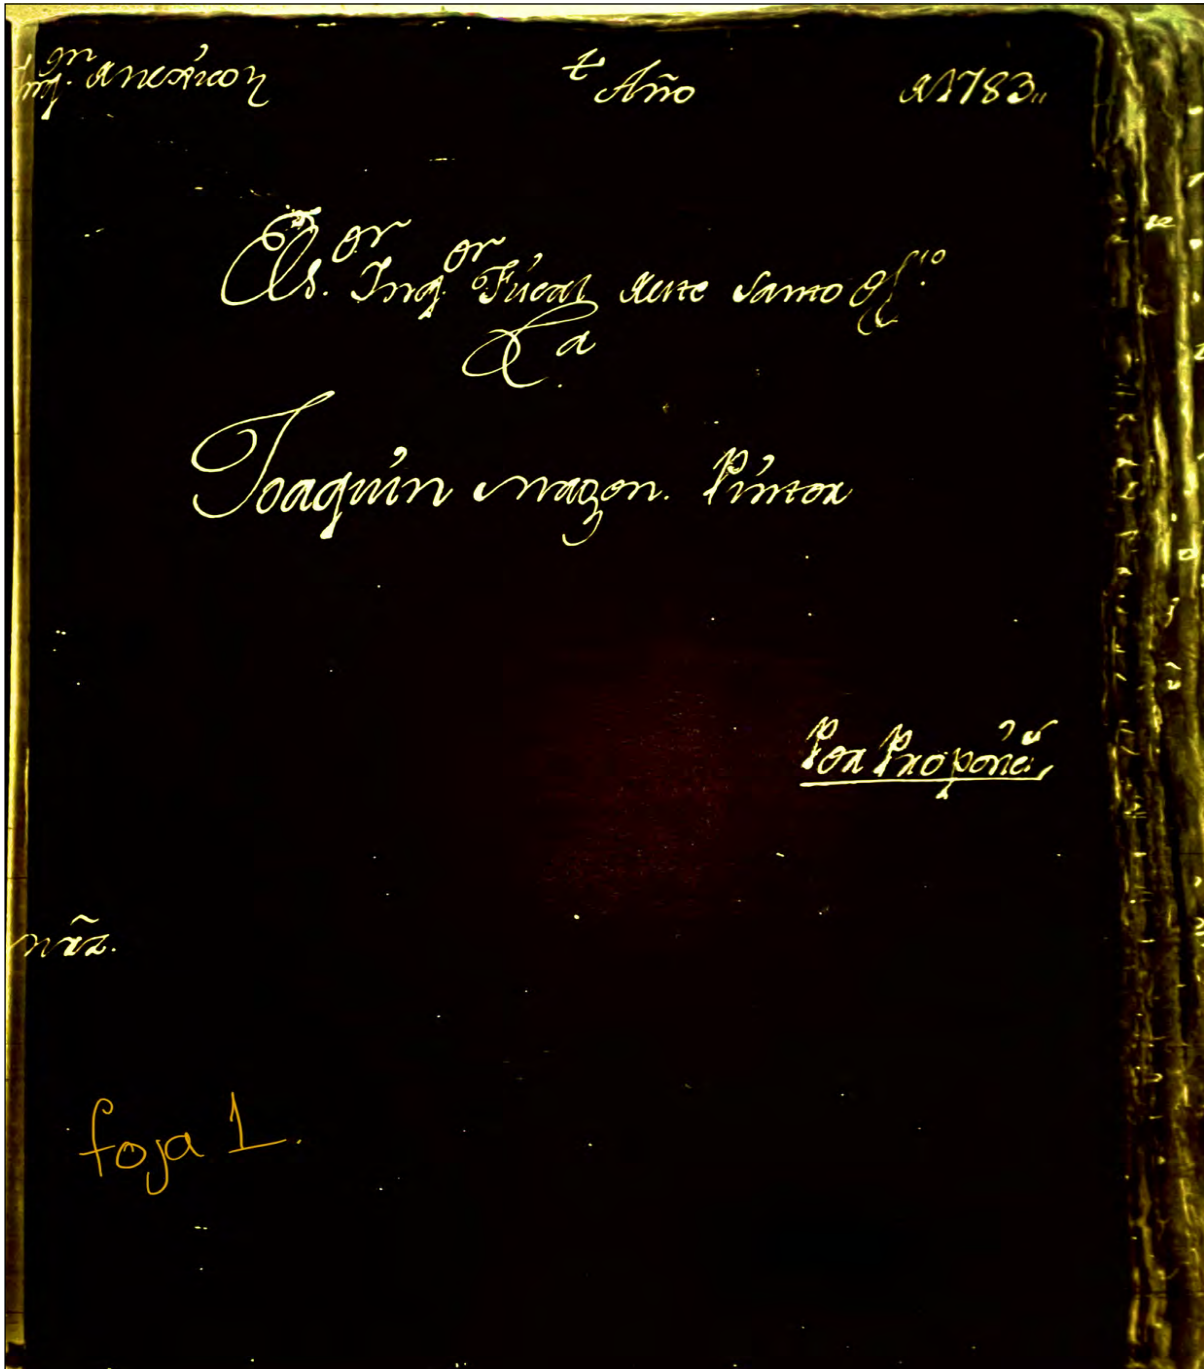 Inqq.on de Mexico y † Año de 1783,,
El S.or Inq.or Fiscal de este Santo Of.io
C.a
Joaquin Mazon. Pintor
Por Propon.es
foja 1.